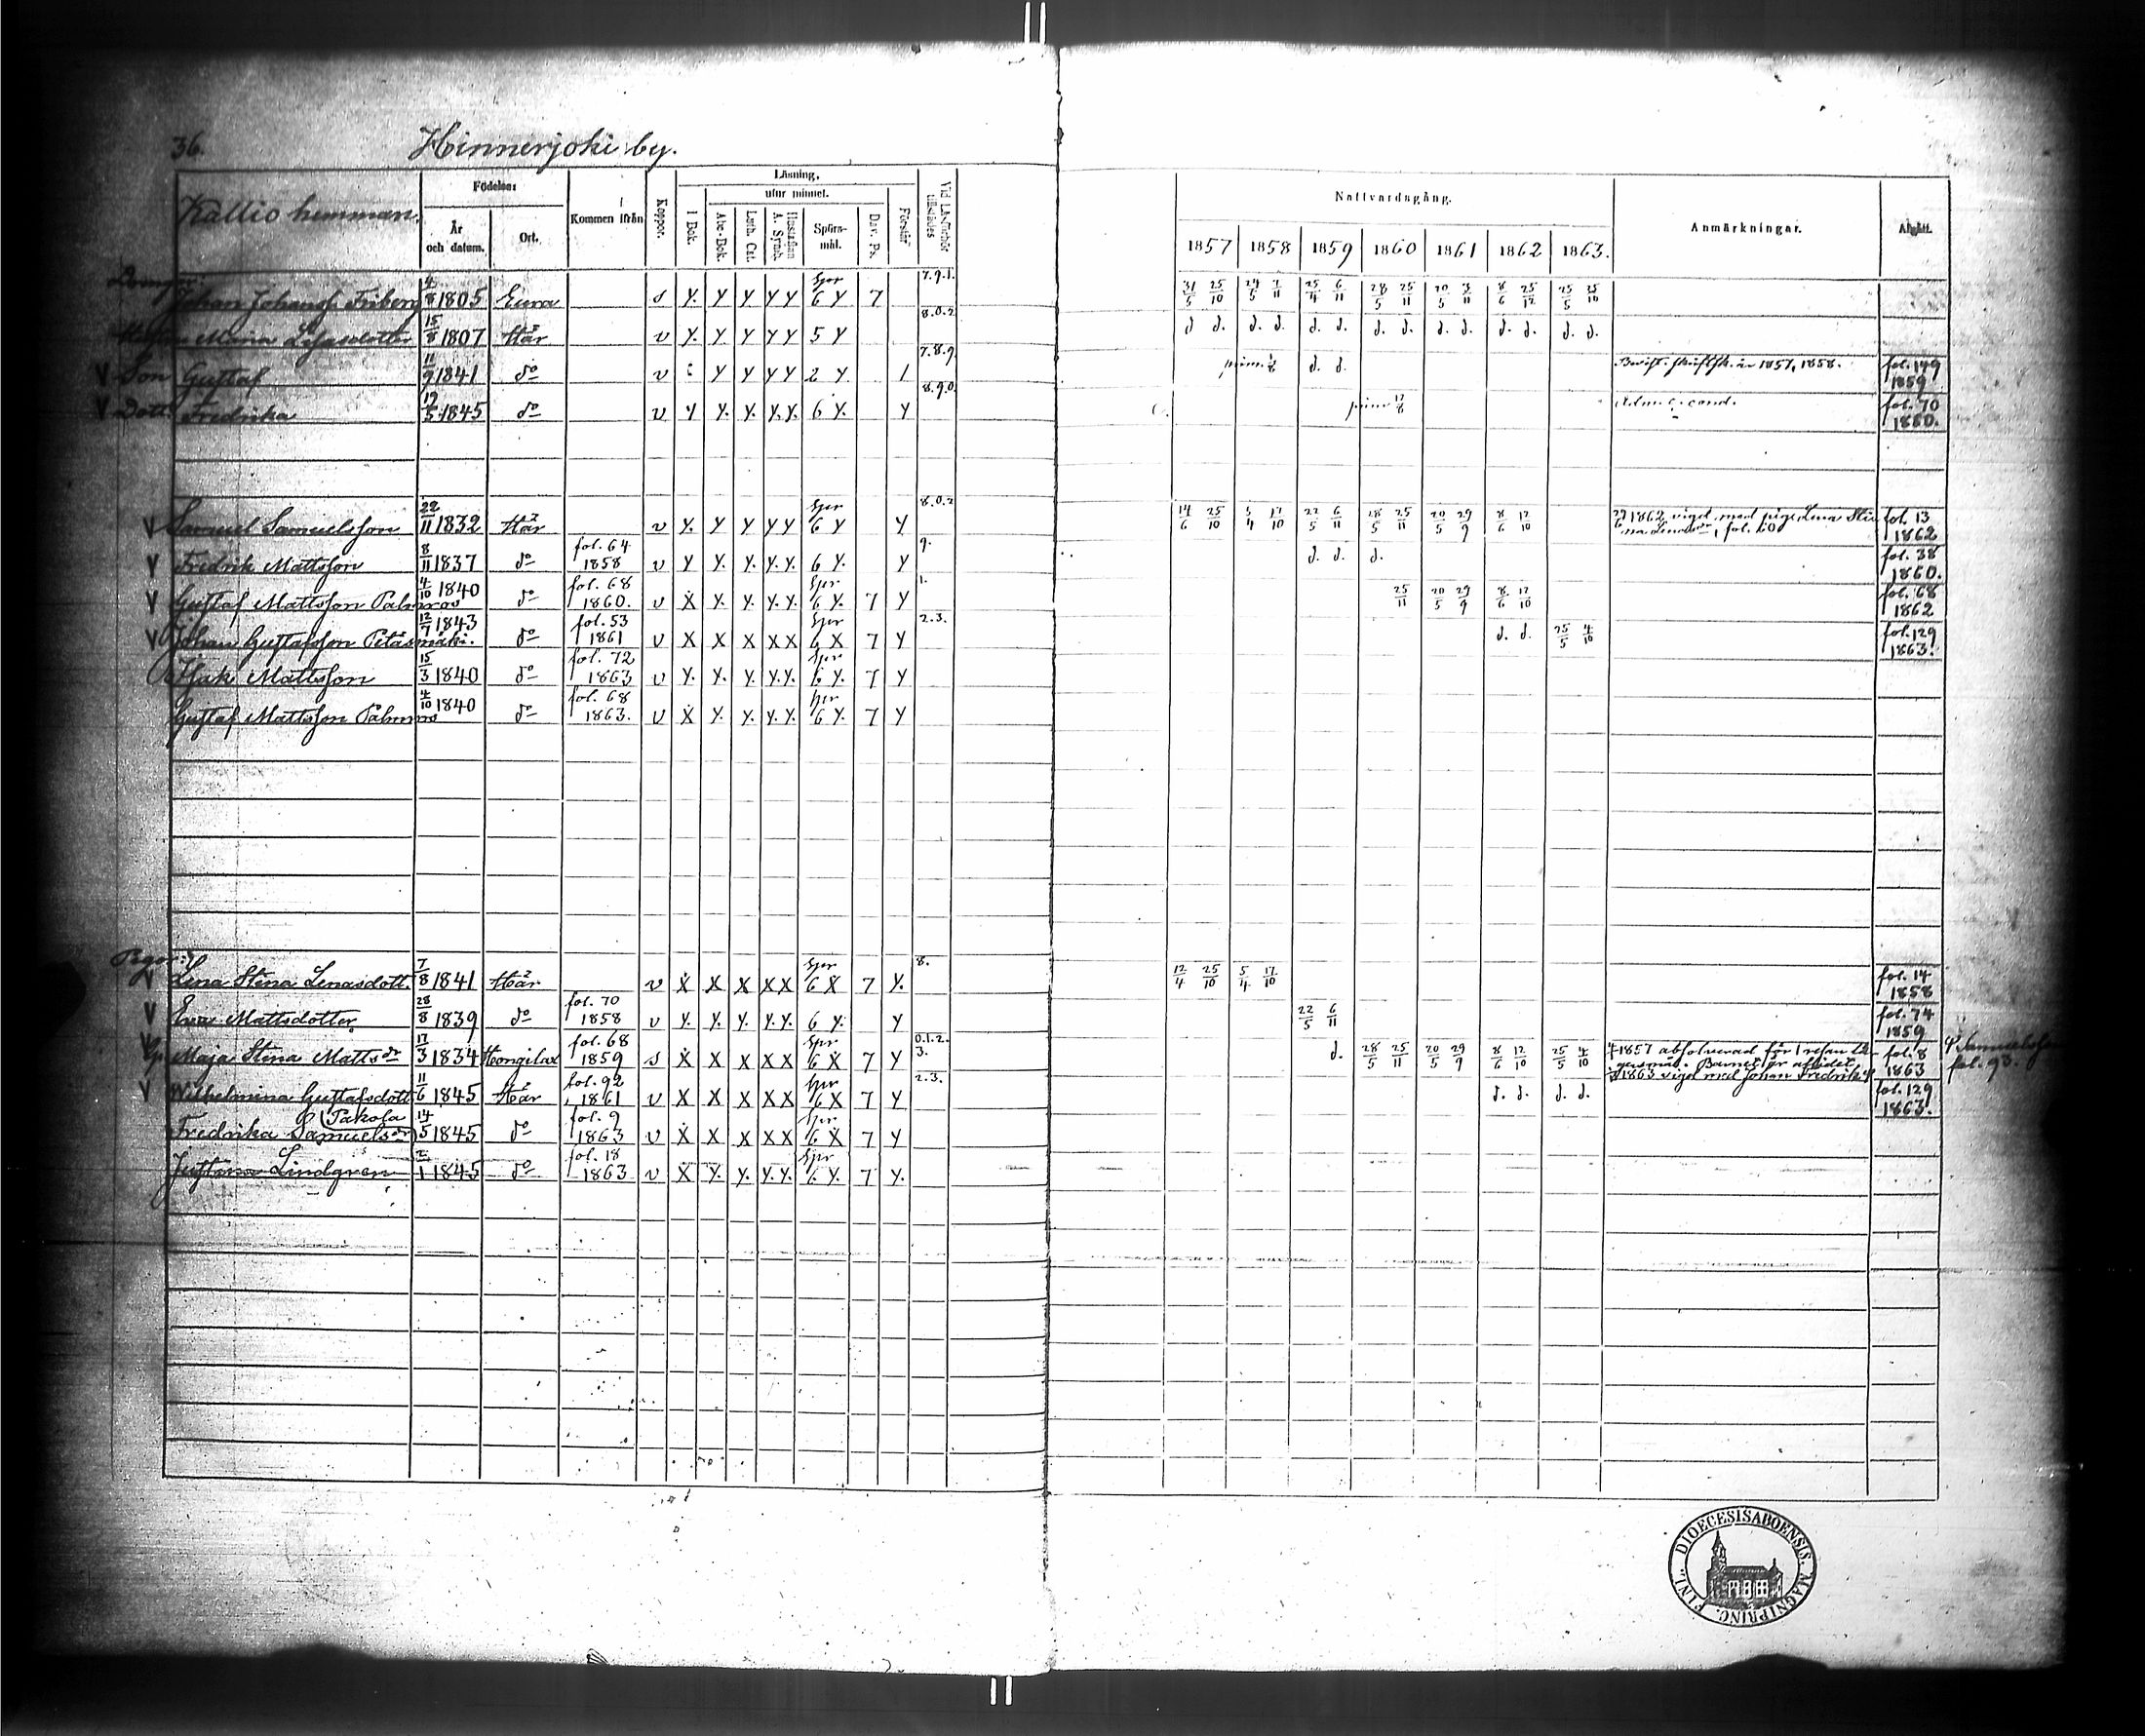 36. Hinnerjoki by.
Kallio hemman.
Födelse: År och datum. Ort. Kommen ifrån Koppor. Läsning, I Bok. utur minnet. Abc-Bok. Luth. Cat. Hustaflan A. Symb. Spörs-mål. Dav. Ps. Förstår Vid Läsförhör tillstädes
Nattvardsgång. 1857 1858 1859 1860 1861 1862 1863. Anmärkningar. Afgått.
Johan Johansf Friberg 4/8 1805 Eura s y. y y y y Spr 6 y 7 7.9.1. 31/5 25/10 24/5 7/11 25/4 6/11 28/5 25/11 20/5 3/11 8/6 25/12 25/5 25/10
Maria 15/8 1807 Här v y. y y y y 5 y 8.0.2 d d. d. d. d. d. d. d. d. d. d. d. d. d.
v Son Gustaf 11/9 1841 do v y y y y 2 y 1 7.8.9. d. d. 1857, 1858. fol. 149 1859
v Dott. Fredrika 19/5 1845 do v y y. y. y. y. 6 y. y 8.9.0. prim 17/8 Adm. c. cond. fol. 70 1860.
v Samuel Samuelsson 22/11 1832 Här v y. y y y y Spr 6 y y 8.0.2 14/6 25/10 5/4 17/10 22/5 6/11 28/5 25/11 20/5 29/9 8/6 12/10 1862 vigd med pigan Lena Sti- na Lenasdr, fol. 60 fol. 13 1862
v Fredrik Mattsson 8/11 1837 do fol. 64 1858 v y y. y. y. y. 6 y. y 9. d. d. d. fol. 38 1860.
v Gustaf Mattsson Palmros 4/10 1840 do fol. 68 1860. v X y. y. y. y. Spr 6 y. 7 y 1. 25/11 20/5 29/9 8/6 12/10 fol. 68 1862
v Johan Gustafsson Petäsmäki. 12/7 1843 do fol. 53 1861 v X X X X X Spr 6 X 7 y 2.3. d. d. 25/5 4/10 fol. 129 1863.
Isak Mattsson 15/3 1840 do fol. 72 1863 v y. y. y. y. y. Spr 6 y. 7 y
Gustaf Mattsson Palmros 4/10 1840 do fol. 68 1863. v X y. y. y. y. Spr 6 y. 7 y
Pigor:
v Lena Stina Lenasdott. 7/8 1841 Här v X X X X X Spr 6 X 7 y. 8. 12/4 25/10 5/4 17/10 fol. 14 1858
v Eva Mattsdotter 28/8 1839 do fol. 70 1858 v y. y. y. y. y. 6 y. y 22/5 6/11 fol. 74 1859
Maja Stina Mattsdr 17/3 1834 Hongilax fol. 68 1859 s X X X X X Spr 6 X 7 y 0.1.2. 3. d. 28/5 25/11 20/5 29/9 8/6 12/10 25/5 4/10 1857 absolverad för 1 resan lä- gersmål. Barnet är aflidet. 1863 vigd med Johan Fredrik fol. 8 1863 Samuelsson fol. 93.
v Wilhelmina Gustafsdott 11/6 1845 Här fol. 92 1861 v X X X X X Spr 6 X 7 y 2.3. d. d. d. d. fol. 129 1863.
Fredrika Samuelsdr (Pakola 14/5 1845 do fol. 9 1863 v X X X X X Spr 6 X 7 y
Justina Lindgren 2/1 1845 do fol. 18 1863 v X y. y. y. y. Spr 6 y. 7 y.
FINL. DIOECESIS ABOENSIS. MAGNI PRINC.